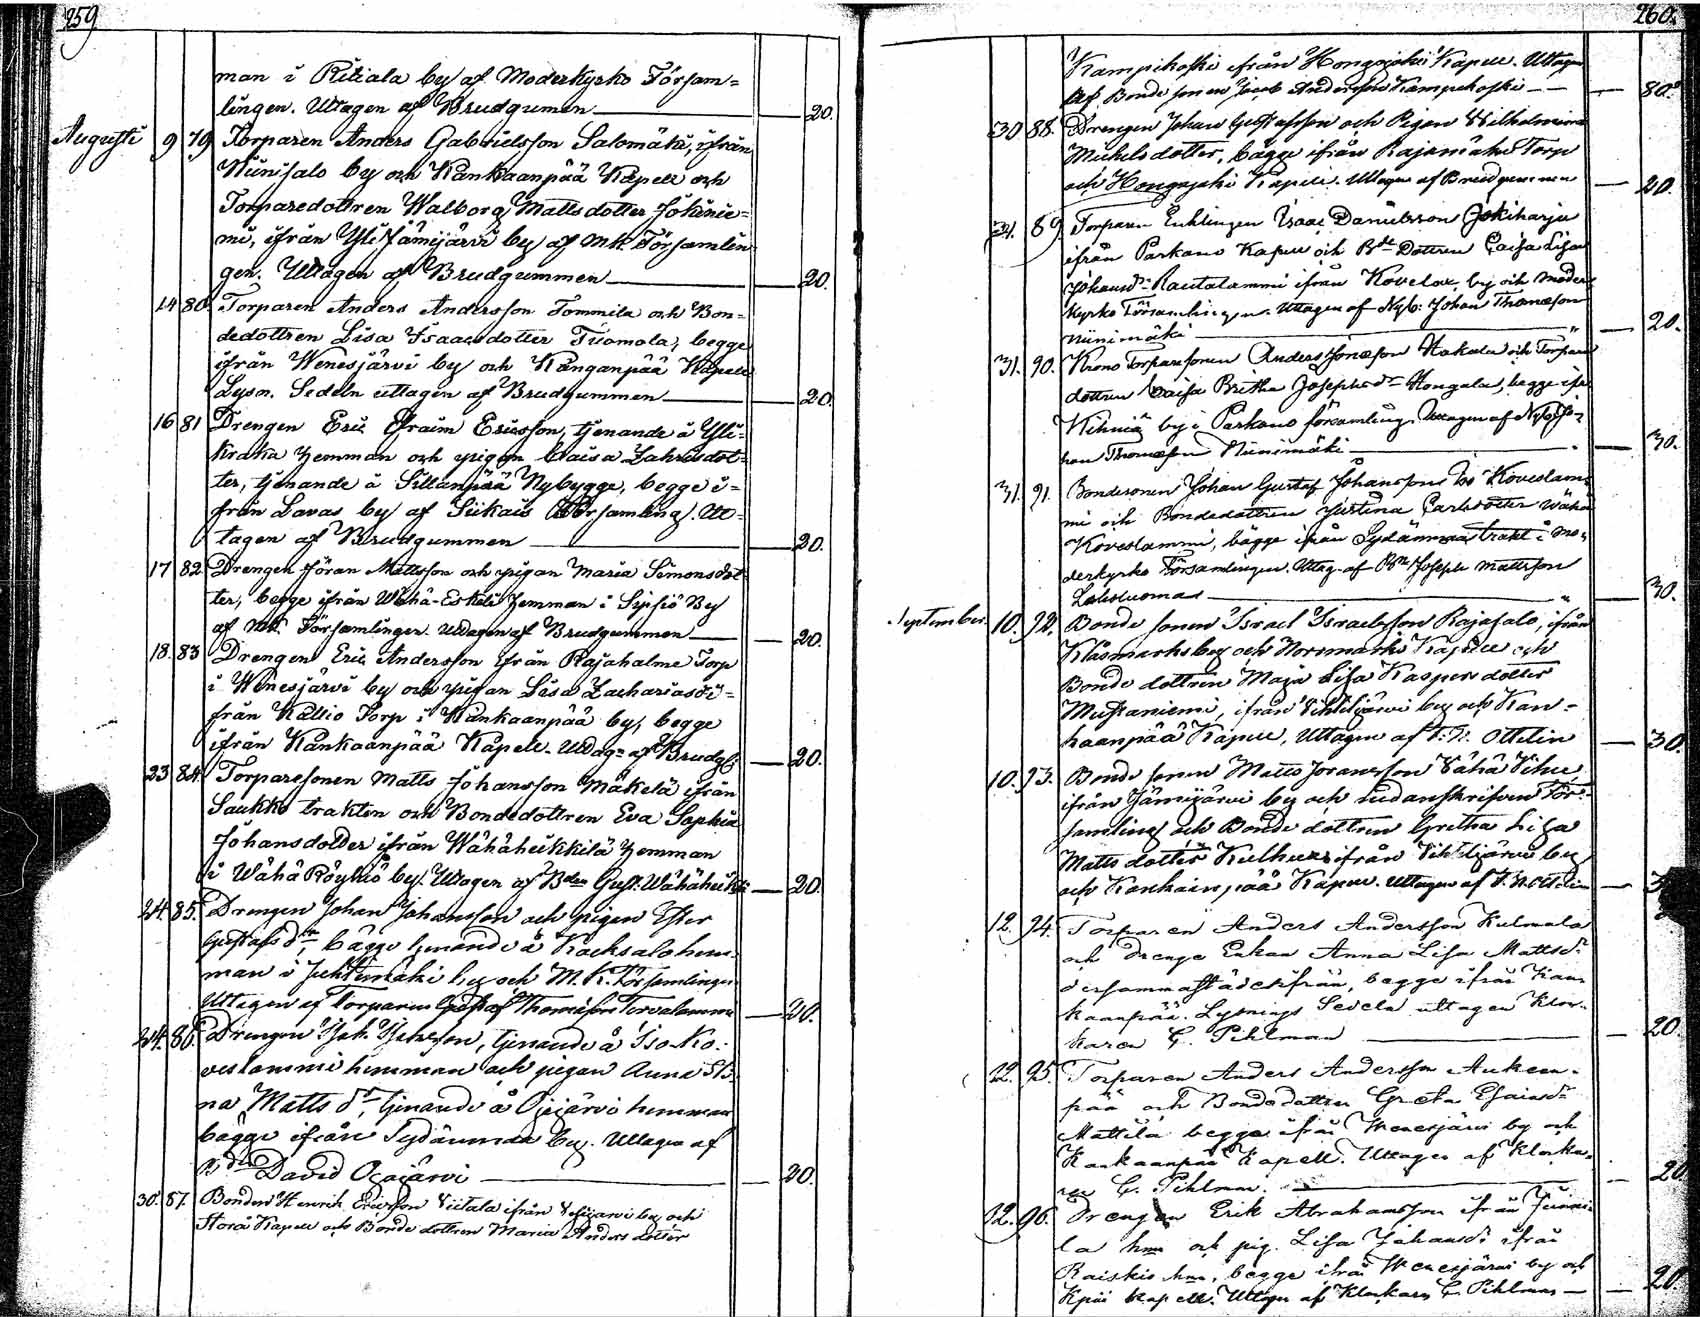 259
man i Ritiala by af Moderkyrko Försam=
lingen. Uttagen af Brudgumen — 20.
Augusti 9 79 Torparen Anders Gabrielsson Salomäki, ifrån
Niinisalo by och Kankaanpää Kapell och
Torparedottren Walborg Mattsdotter Jokinie=
mi, ifrån Yli Jämijärvi by af Mk. Församlin
gen. Uttagen af Brudgummen — 20.
14 80. Torparen Anders Andersson Tommila och Bon=
dedottren Lisa Isaacsdotter Tuomola, begge
ifrån Wenesjärvi by och Kanganpää Kapell
Lysn. Sedeln uttagen af Brudgummen — 20.
16 81 Drengen Eric Efraim Ericsson, tjenande å Yli=
kraka hemman och pigan Caisa Zachrisdot=
ter, tjenande å Sillanpää Nybygge, begge i=
från Lavas by af Siikais Församling. Ut=
tagen af Brudgummen — 20.
17 82 Drengen Jöran Mattsson och pigan Maria Simonsdot
ter, begge ifrån Wähä-Eskeli hemman i Sipsiö By
af Mk. Församlingen. Uttagen af Brudgummen — 20.
18. 83 Drengen Eric Andersson ifrån Rajahalme Torp
i Wenesjärvi by och pigan Lisa Zachariasd i=
från Kallio Torp i Kankaanpää by, begge
ifrån Kankaanpää Kapell. Uttagn af Brudg. — 20.
23 84. Torparesonen Matts Johansson Mäkelä ifrån
Saukko trakten och Bondedottren Eva Sophia
Johansdotter ifrån Wähäheikkilä hemman
i Wähä Röyhiö by. Uttagen af Bden Gust. Wähäheikki — 20.
24. 85. Drengen Johan Johansson och pigan Ester
Gustafs dr, bägge tjenande å Kacksalo hem=
man i Juhtimäki by och M. K. Församlingen
Uttagen af Torparen Gustaf Thomasson Torvalammi — 20.
24. 86. Drengen Isak Isaksson, tjenande å Iso-Ko=
veslammi hemman och pigan Anna Sti=
na Matts dr, tjenande å Ojajärvi hemman
bägge ifrån Sydänmaa by. Uttagen af
Bden David Ojajärvi — 20.
30. 87. Bonden Henrik Ericsson Viitala ifrån by och
Storå Kapell och Bonde dottren Maria Anders dotter
260.
Kampikoski ifrån Hongojoki Kapell. Uttagen
af Bonde sonen Jacob Andersson Kampikoski — 80.
30 88. Drengen Johan Gustafsson och Pigan Wilhelmina
Michelsdotter, bägge ifrån Rajamäki Torp
och Hongojoki Kapell. Uttagen af Brudgummen — 20.
31. 89. Torparen Enklingen Isaac Danielsson Jokiharju
ifrån Parkano Kapell och Bde Dottren Caisa Lisa
Johansdr Rautalammi ifrån Kovelax by och moder=
kyrko Församlingen. Uttagen af Nyb. Johan Thomasson
Niinimäki — 20.
31. 90. Krono Torparesonen Anders Jonasson Hakala och Torpare
dottren Caisa Britha Josephsdr Hongala, begge ifr.
Kihniä by i Parkano församling. Uttagen af Nyb. Jo=
han Thomasson Niinimäki — 30.
31. 91. Bondesonen Johan Gustaf Johansson Iso Koveslam=
mi och Bondedottren Justina Carlsdotter Wähä
Koveslammi, bägge ifrån Sydänmaa trakt i mo=
derkyrko Församlingen. Uttag. af Bn Joseph Mattsson
Lahdluomas — 30.
September. 10. 92. Bonde sonen Israel Israelsson Rajasalo, ifrån
Klåsmarks by och Norrmarks Kapell och
Bonde dottren Maja Lisa Kaspersdotter
Mustaniemi, ifrån Vihteljärvi by och Kan=
kaanpää Kapell, Uttagen af F. N. Ottelin — 30.
10. 93. Bonde sonen Matts Joransson Vähä Vihu
ifrån Jämijärvi by och redanskrifven För=
samling och Bonde dottren Gretha Lisa
Matts dotter ifrån Vihteljärvi by
och Kankaanpää Kapell. Uttagen af F. N. Ottelin —
12. 94. Torparen Anders Andersson Kulmala
och Drenge Enkan Anna Lisa Mattsdr
dersammastädesifrån, begge ifrån Kan
kaanpää. Lysnings Sedeln uttagen Kloc=
karen C. Pihlman — 20.
12. 95. Torparen Anders Andersson Aukeen=
pää och Bondedottren Greta Esaiasdr
Mattila begge ifrån Wenesjärvi by och
Kankaanpää Kapell. Uttagen af Klocka=
ren C. Pihlman. — 20
12. 96. Drengen Erik Abrahamsson ifrån
la hmn och pig. Lisa Johansdr ifrån
Raiskio hmn, begge ifrån Wenesjärvi by och
Kpää Kapell. Uttagen af Klockaren C. Pihlman — 20.